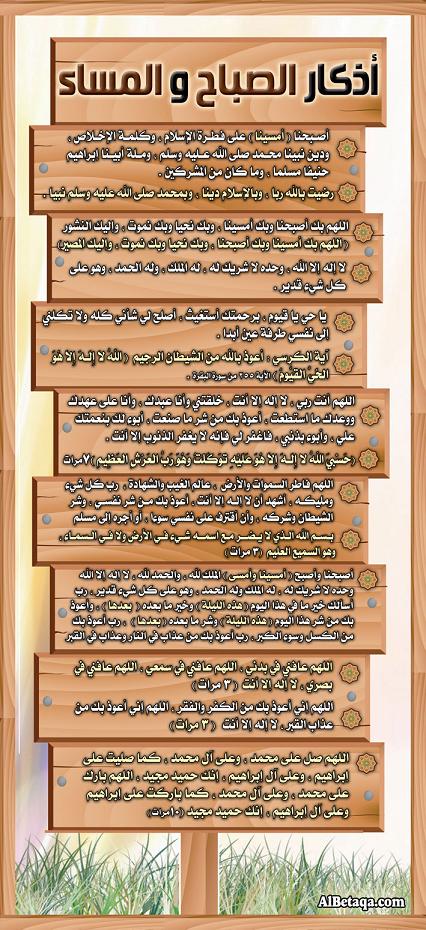 أذكار الصباح و المساء
أصبحنا ( أمسينا ) على فطرة الإسلام ، وكلمة الإخلاص ،
ودين نبينا محمد صلى الله عليه وسلم ، وملة أبينا إبراهيم
حنيفا مسلما ، وما كان من المشركين .
رضيت بالله ربا ، وبالإسلام دينا ، وبمحمد صلى الله عليه وسلم نبيا .
اللهم بك أصبحنا وبك أمسينا ، وبك نحيا وبك نموت ، وإليك النشور
( اللهم بك أمسينا وبك أصبحنا ، وبك نحيا وبك نموت ، وإليك المصير)
لا إله إلا الله ، وحده لا شريك له ، له الملك ، وله الحمد ، وهو على
كل شيء قدير .
يا حي يا قيوم ، برحمتك أستغيث ، أصلح لي شأني كله ولا تكلني
إلى نفسي طرفة عين أبدا .
آية الكرسي : أعوذ بالله من الشيطان الرجيم ( الله لا إله إلا هو
الحي القيوم) الآية ٢٥٥ من سورة البقرة .
اللهم أنت ربي ، لا إله إلا أنت ، خلقتني وأنا عبدك ، وأنا على عهدك
ووعدك ما استطعت ، أعوذ بك من شر ما صنعت ، أبوء لك بنعمتك
علي ، وأبوء بذنبي ، فاغفر لي فإنه لا يغفر الذنوب إلا أنت .
(حسبي الله لا إله إلا هو عليه توكلت وهو رب العرش العظيم) ٧مرات
اللهم فاطر السموات والأرض ، عالم الغيب والشهادة ، رب كل شيء
ومليكه ، أشهد أن لا إله إلا أنت ، أعوذ بك من شر نفسي ، وشر
الشيطان وشركه ، وأن أقترف على نفسي سوء ، أو أجره إلى مسلم
بسم الله الذي لا يضر مع اسمه شيء في الأرض ولا في السماء ،
وهو السميع العليم (٣ مرات)
أصبحنا وأصبح ( أمسينا وأمسى) الملك لله ، والحمد لله ، لا إله إلا الله
وحده لا شريك له ، له الملك وله الحمد ، وهو على كل شيء قدير ، رب
أسألك خير ما في هذا اليوم ( هذه الليلة ) وخير ما بعده ( بعدها ) ، وأعوذ
بك من شر هذا اليوم ( هذه الليلة) وشر ما بعده (بعدها) ، رب أعوذ بك
من الكسل وسوء الكبر ، رب أعوذ بك من عذاب في النار وعذاب في القبر
اللهم عافني في بدني ، اللهم عافني في سمعي ، اللهم عافني في
بصري ، لا إله إلا أنت ( ٣ مرات )
اللهم إني أعوذ بك من الكفر والفقر ، اللهم إني أعوذ بك من
عذاب القبر ، لا إله إلا أنت ( ٣ مرات )
اللهم صل على محمد ، وعلى آل محمد ، كما صليت على
إبراهيم ، وعلى آل إبراهيم ، إنك حميد مجيد ، اللهم بارك
على محمد ، وعلى آل محمد ، كما باركت على إبراهيم
وعلى آل إبراهيم ، إنك حميد مجيد (١٠مرات)
AlBetaqa.com